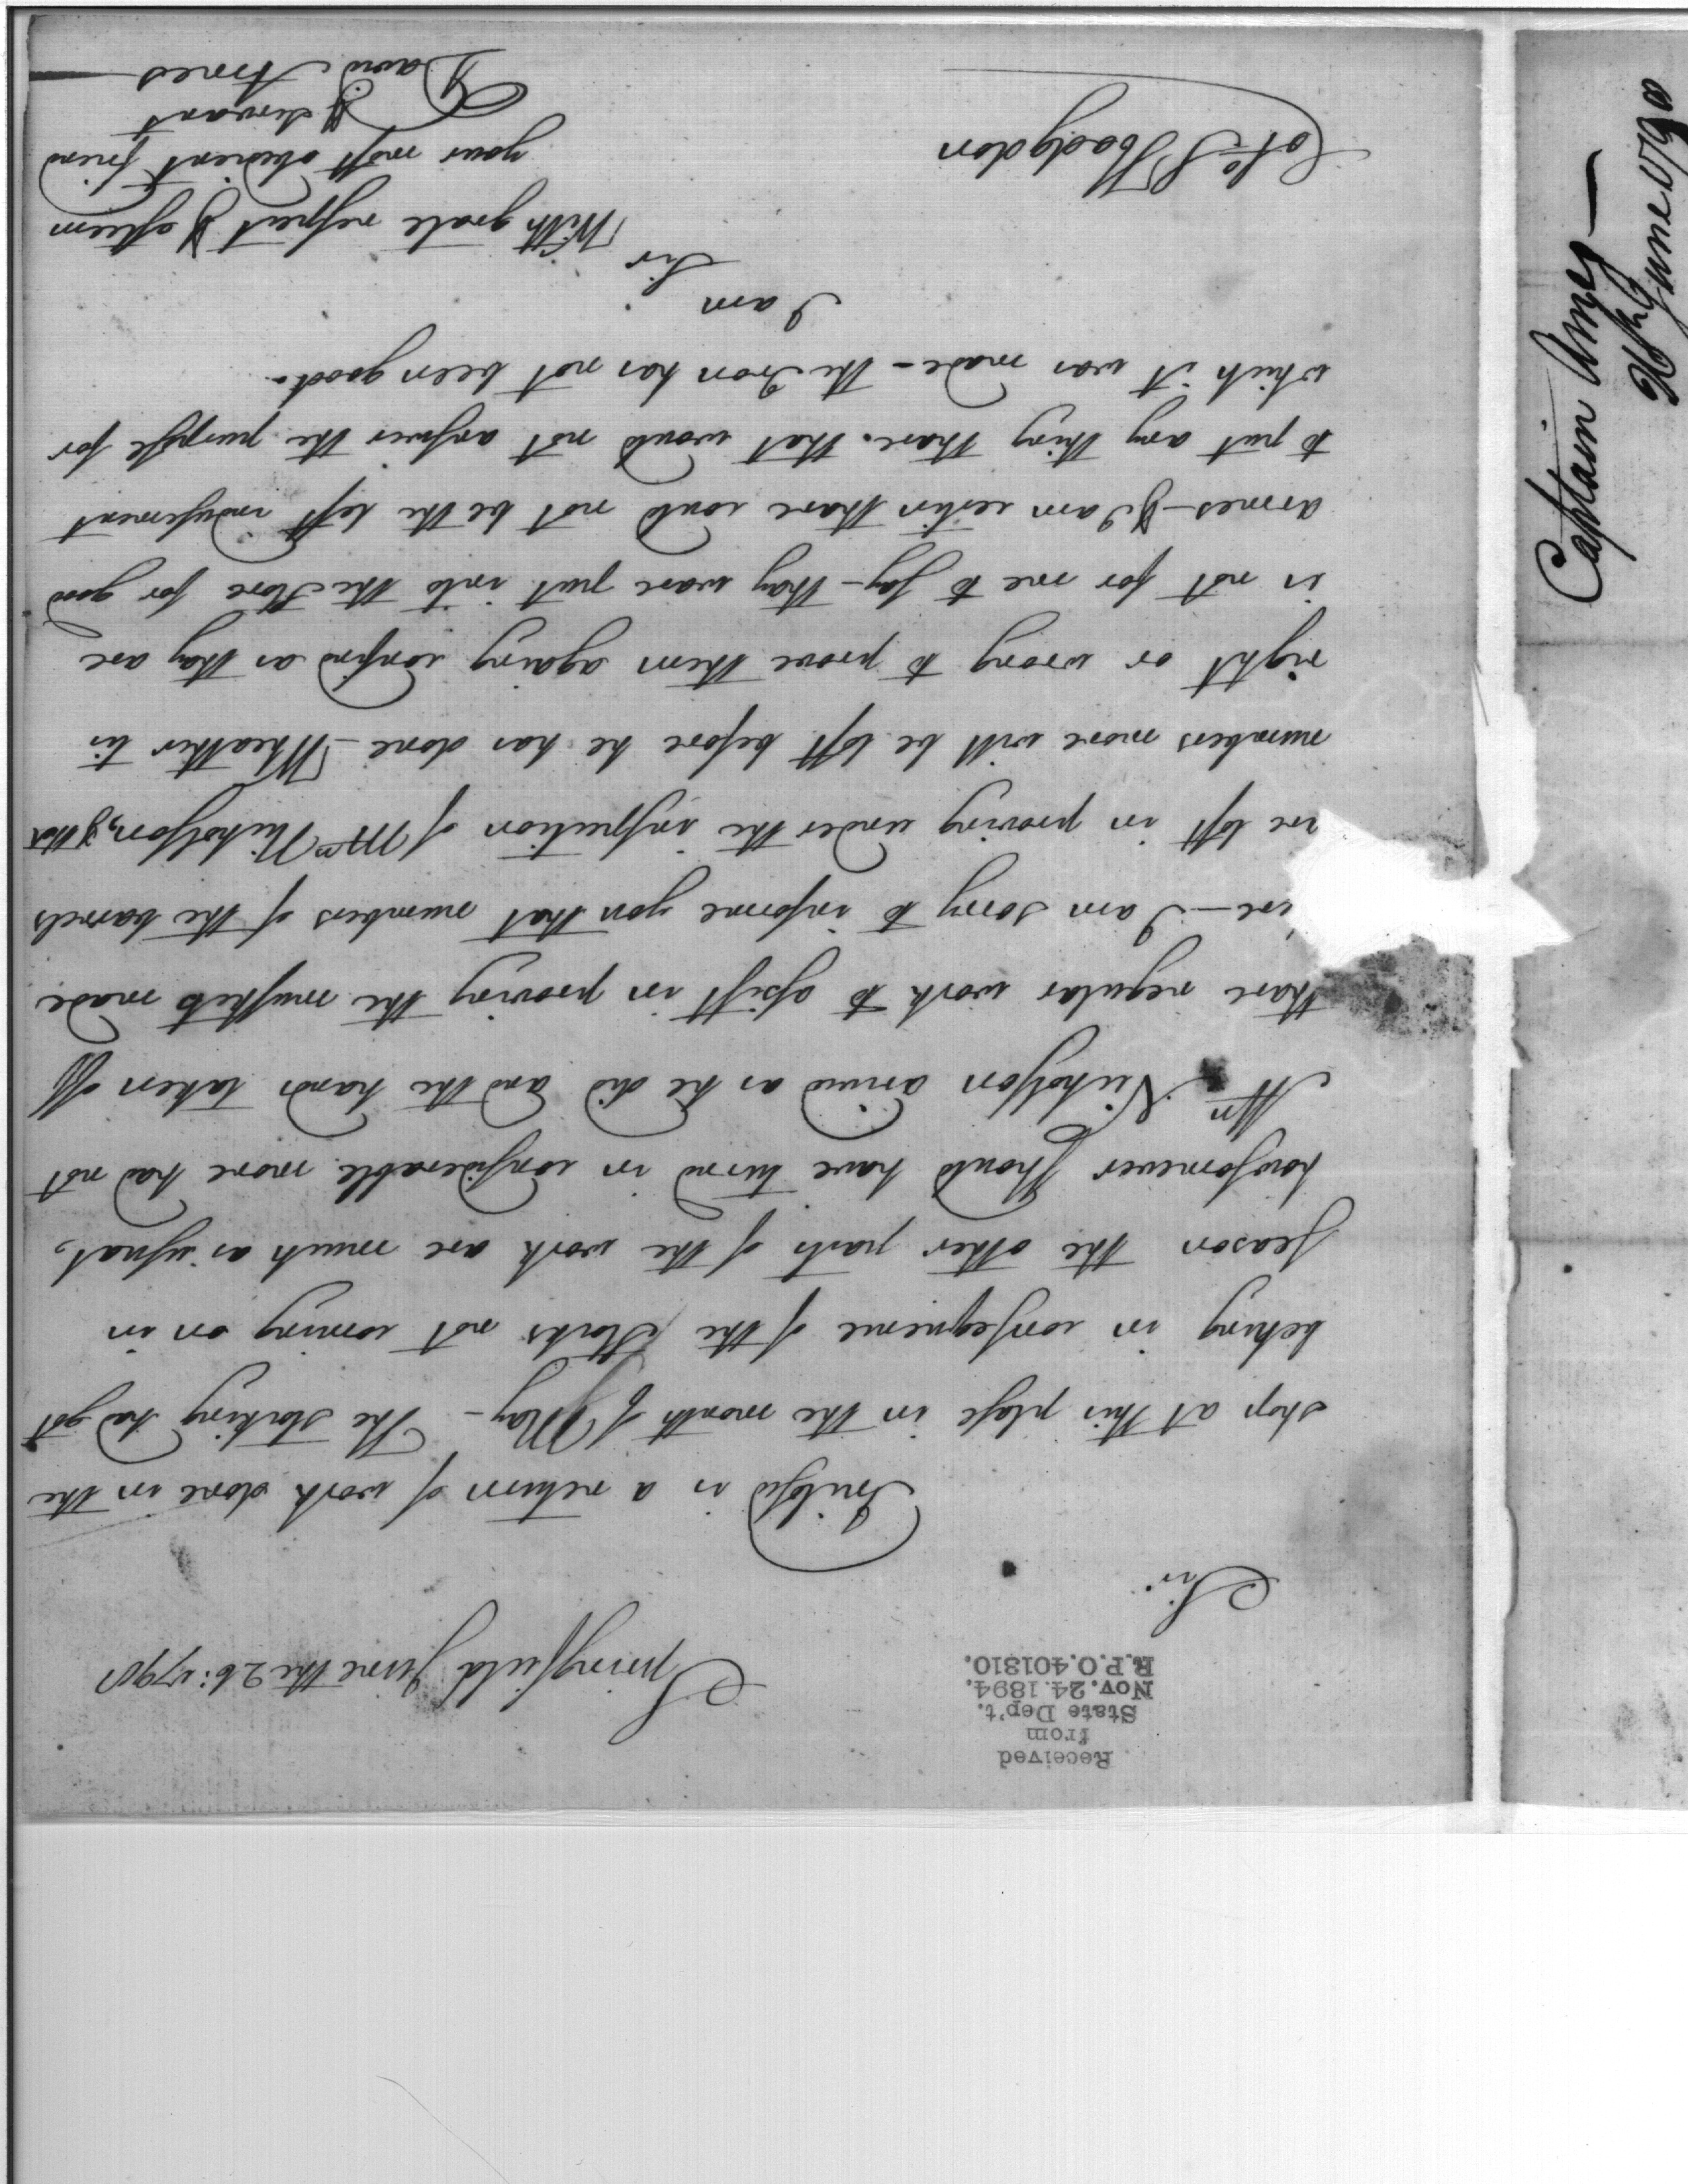 Received
from
State Dep't.
Nov. 24. 1894.
R.P.O. 401310.
Springfield June the 26: 1790
Sir
Inclosd is a return of work done in the
shop at this plase in the month of May - The stocking had got
behing in consequence of the Stocks not coming on in
season the other parts of the work are much as usual,
howsomever should have turnd in considerable more had not
Mr Nicholson arived as he did and the hands taken off
thare regular work to assist in proving the muskets made
I am sorry to informe you that numbers of the barrels
lost in proving under the inspection of Mr Nicholson, & that
numbers more will be lost before he has done - Wheather tis
right or wrong to prove them againg confind as thay are
is not for me to say - thay ware put into the Store for good
armes - & I am certin thare could not be the lest inducement
to put any thing thare that would not answer the purpose for
which it was made - the Iron has not been good.
I am
Sir
With grate respect & esteem
your most obedient friend
& servant
David Ames
Colo S Hodgdon
Captain Ames
26th June 1790